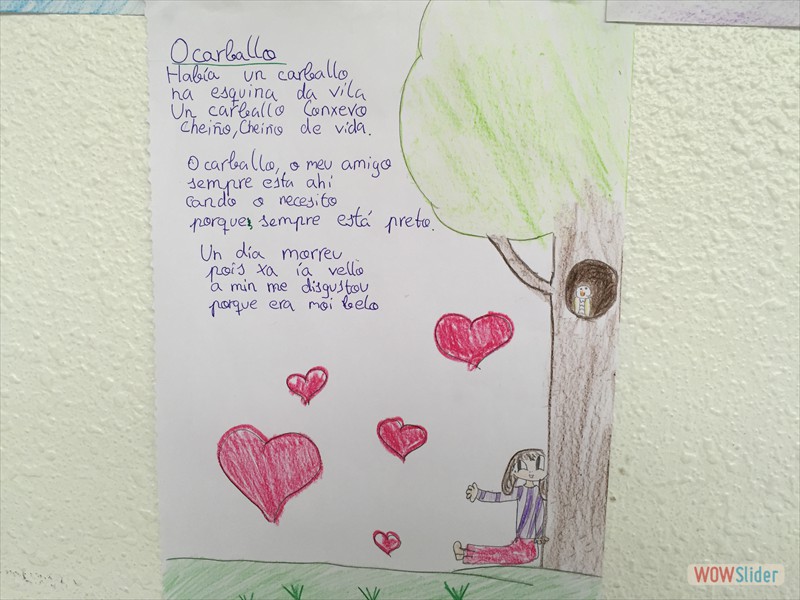 O carballo
Había un carballo
na esquina da vila
Un carballo Conxevo
cheiño, cheiño de vida.
O carballo, o meu amigo
sempre esta ahí
cando o necesito
porque, sempre está preto.
Un día morreu
pois xa ía vello
a min me disgustou
porque era moi belo
WOWSlider